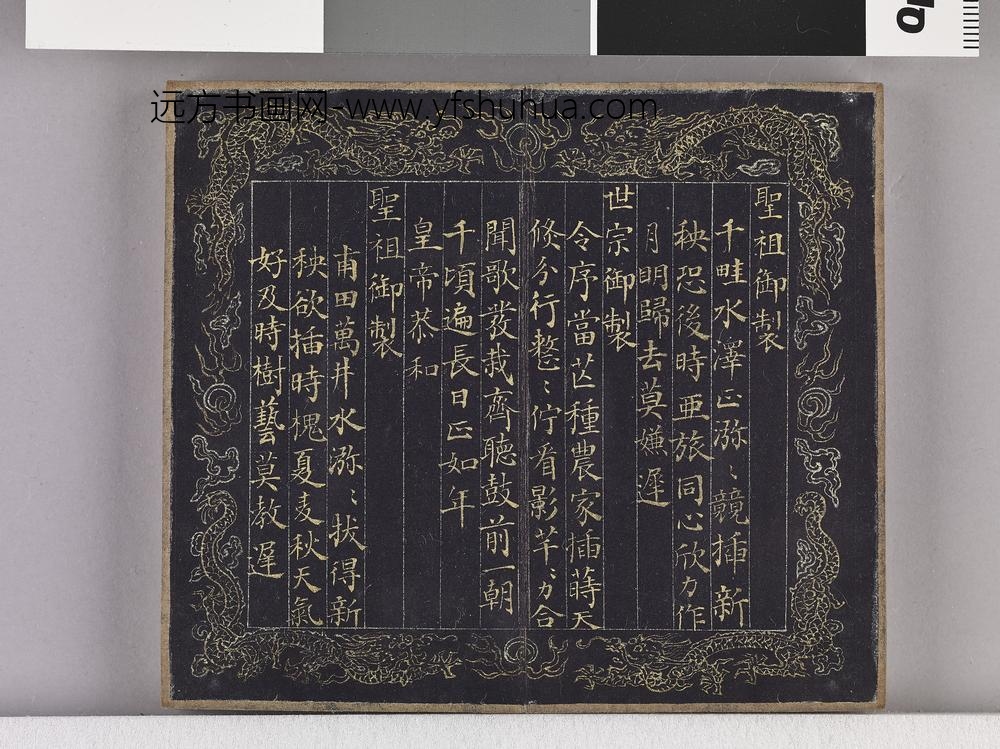 远方书画网-www.yfshuhua.com
聖祖御製
千畦水澤正㳽〻競揷新
秧恐後時亜旅同心欣力作
月明歸去莫嫌遲
世宗御製
令序當芒種農家揷蒔天
倏分行整〻佇看影芊〻力合
聞歌發栽齊聽鼓前一朝
千頃遍長日正如年
皇帝恭和
聖祖御製
甫田萬井水㳽〻拔得新
秧欲揷時槐夏麦秋天氣
好及時樹藝莫教遲